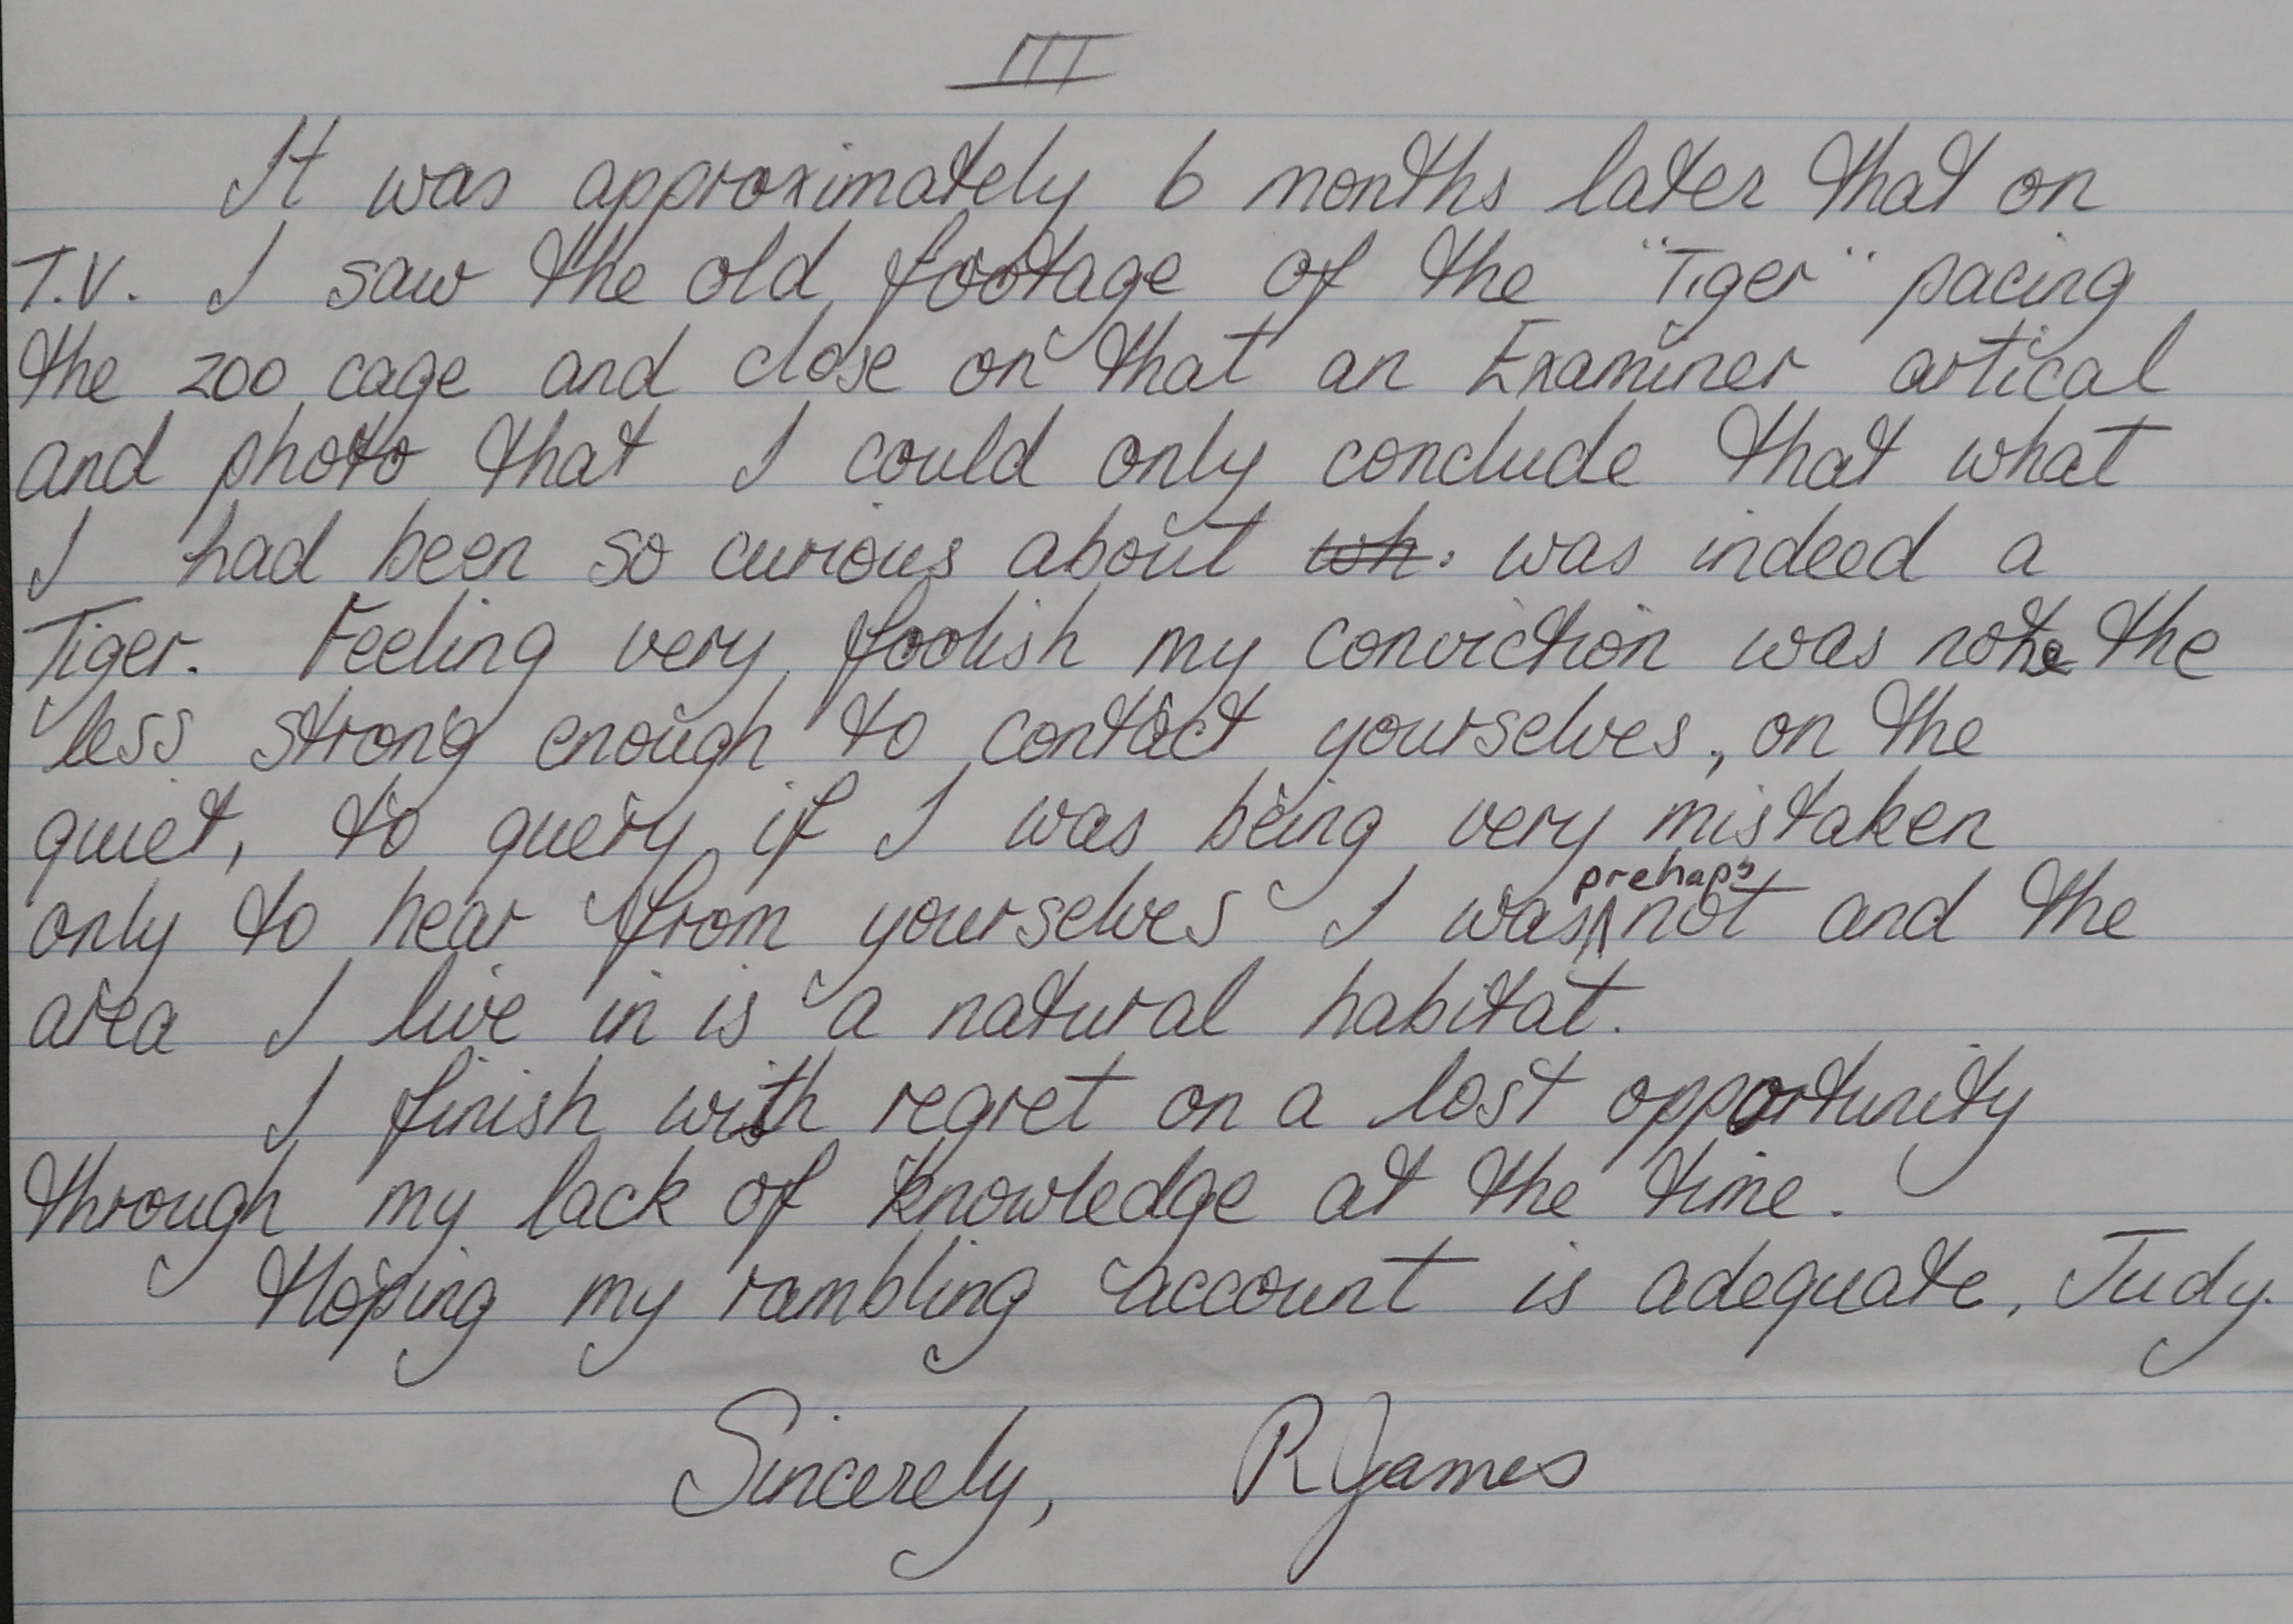 III
It was approximately 6 months later that on
T.V. I saw the old footage of the "Tiger" pacing
the zoo cage and close on that an Examiner artical
and photo that I could only conclude that what
I had been so curious about wh. was indeed a
Tiger. Feeling very foolish my conviction was none the
less strong enough to contact yourselves, on the
quiet, to query if I was being very mistaken
only to hear from yourselves I was prehaps not and the
area I live in is a natural habitat.
I finish with regret on a lost opportunity
through my lack of knowledge at the time.
Hoping my rambling account is adequate, Judy.
Sincerely, R James